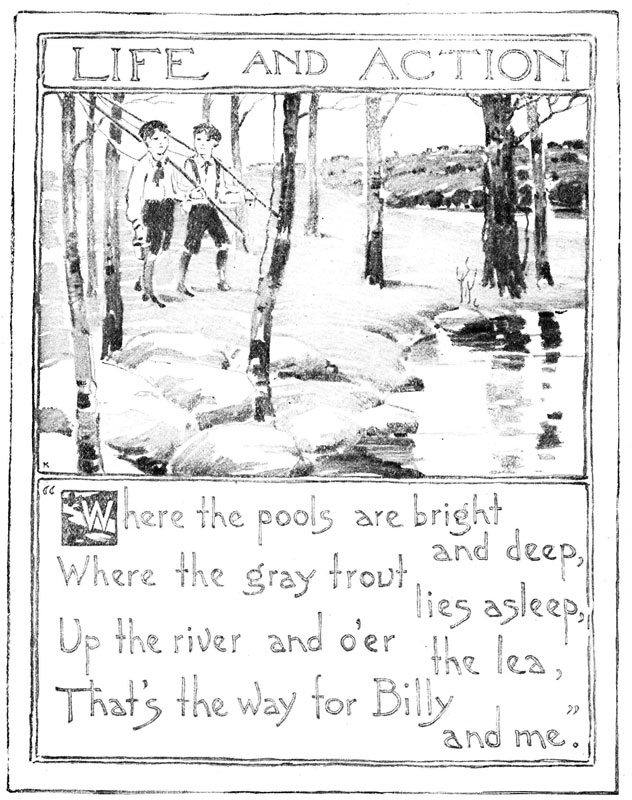 LIFE AND ACTION
K
"Where the pools are bright
and deep,
Where the gray trout
lies asleep,
Up the river and o'er
the lea,
That's the way for Billy
and me."